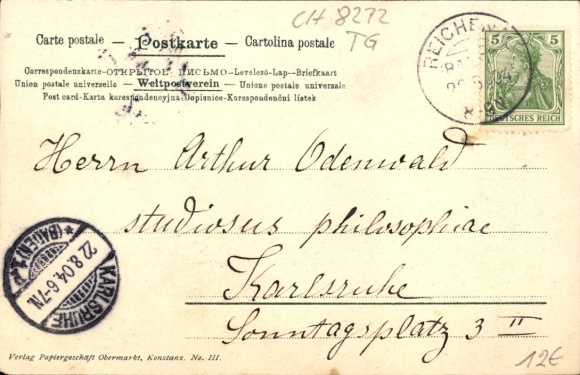 CH 8272
TG
Carte postale — Postkarte — Cartolina postale
Correspondenzkarte-ОТКРЫТОЕ ПИСЬМО-Levelező-Lap-Briefkaart
Union postale universelle — Weltpostverein — Unione postale universale
Post card-Karta korespondencyjna-Dopisnice-Korespondenční lístek
REICHENAU
5 5
DEUTSCHES REICH
Herrn Arthur Odenwald
studiosus philosophiae
Karlsruhe
Sonntagsplatz 3 II
KARLSRUHE
22.8.04.6-7N.
*(BADEN)1.P.
Verlag Papiergeschäft Obermarkt, Konstanz. No. III.
12€